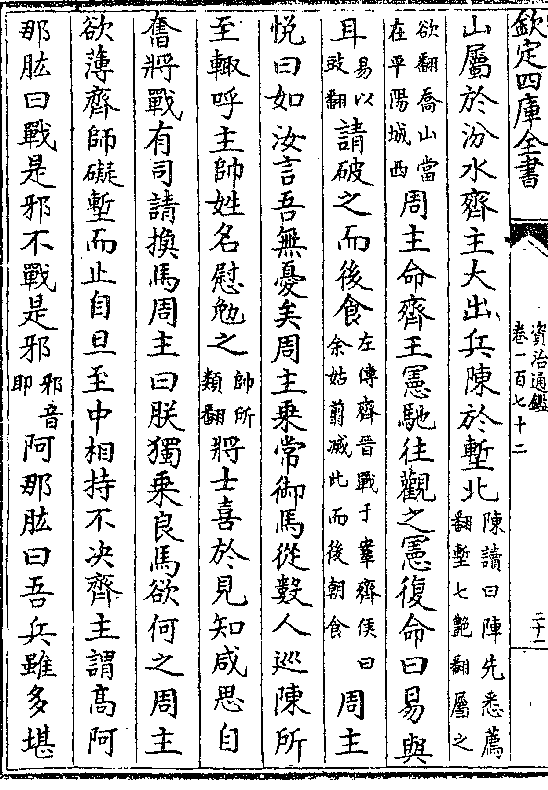 欽定四庫全書
資治通鑑
卷一百七十二
二十一
山屬於汾水齊主大出兵陳於塹北陳讀曰陣先悉薦翻塹七艶翻屬之
欲翻喬山當在平陽城西周主命齊王憲馳往觀之憲復命曰易與
耳易以豉翻請破之而後食左傳齊晉戰于鞌齊侯曰余姑翦滅此而後朝食周主
悅曰如汝言吾無憂矣周主乗常御馬從數人巡陳所
至輙呼主帥姓名慰勉之帥所類翻將士喜於見知咸思自
奮將戰有司請換馬周主曰朕獨乗良馬欲何之周主
欲薄齊師礙塹而止自旦至中相持不决齊主謂髙阿
那肱曰戰是邪不戰是邪邪音耶阿那肱曰吾兵雖多堪